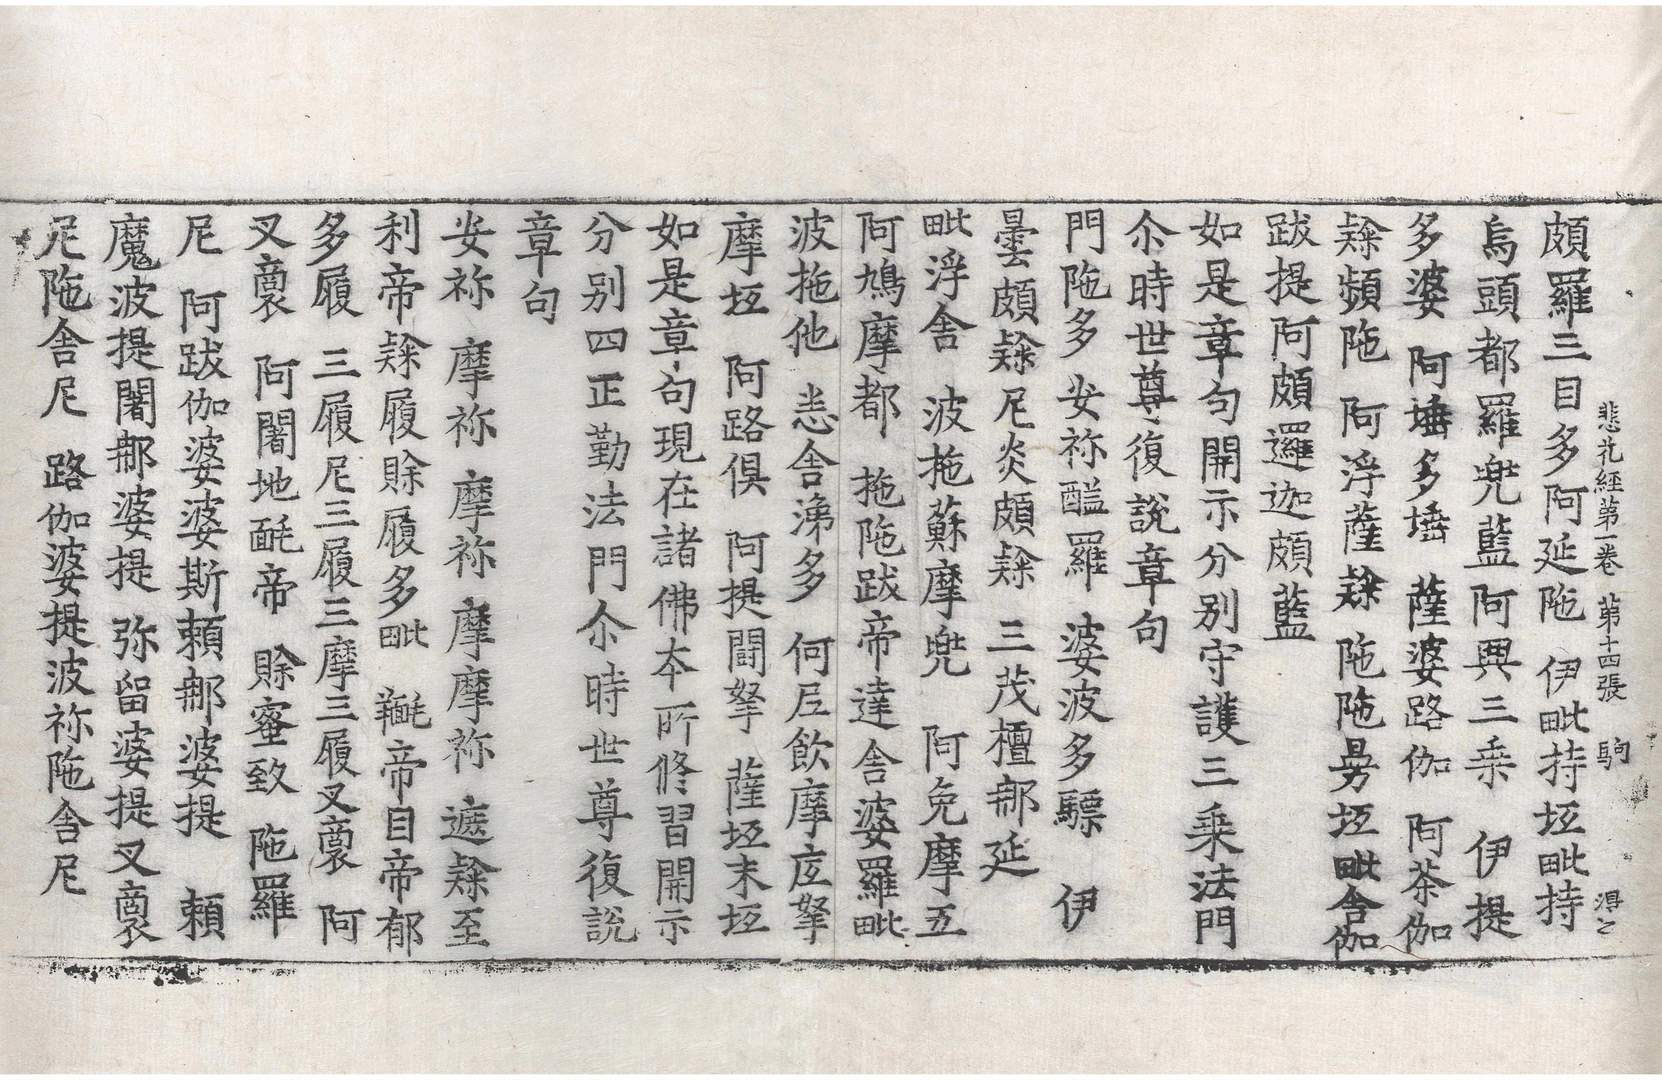 頗羅三目多阿延陁 伊毗持垭毗持
悲花經第一卷 第十四張 駒 淂之
烏頭都羅兠藍阿興三乗 伊提
多婆 阿埵多埵 薩婆路伽 阿荼伽
𨽻頻陁 阿浮薩𨽻陁陁曷垭毗舎伽
跋提阿頗邏迦頗藍
如是章句開示分別守護三乗法門
尒時世尊復說章句
門陁多 安祢醯羅 婆波多驃 伊
曇頗𨽻尼炎頗𨽻 三茂檀那延
毗浮舎 波拖蘇摩兠 阿免摩五
阿鳩摩都 拖陁跋帝達舎婆羅毗
波拖他 恙舎漭多 何𡰱飲摩庢拏
摩垭 阿路俱 阿提鬪拏 薩垭末垭
如是章句現在諸佛夲所俢習開示
分别四正勤法門尒時世尊復說
章句
安祢 摩祢 摩祢 摩摩祢 遮𨽻至
利帝𨽻履賖履多毗 𦍕帝目帝郁
多履 三履尼三履三摩三履叉裔 阿
叉裔 阿闍地䩉帝 賖蜜致 陁羅
尼 阿跋伽婆婆斯頼那婆提 頼
魔波提闍那婆提 弥留婆提叉裔
尼陁舎尼 路伽婆提波祢陁舎尼